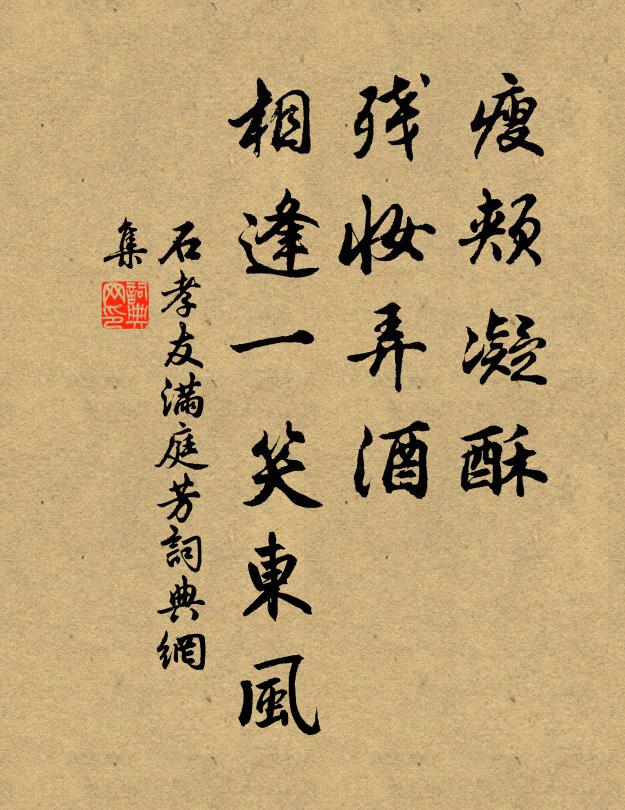 瘦頰凝酥
残妝弄酒
相逢一笑東風
石孝友满庭芳詞典網
集
詞典网印